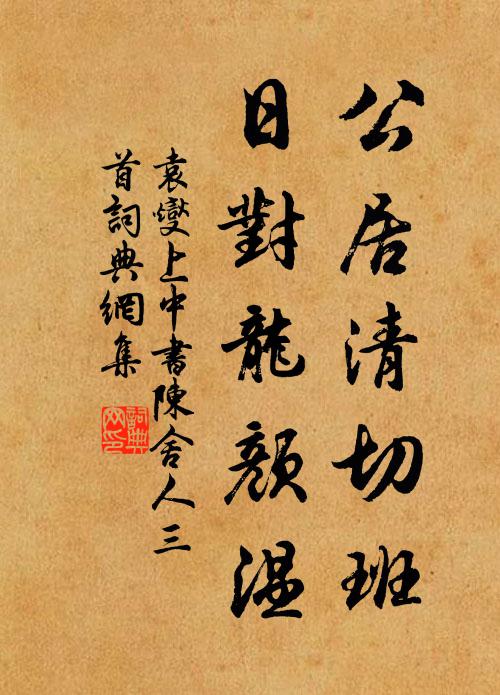 公居清切班
日對龍顏溫
袁燮上中書陳舍人三
首詞典網集
詞典
网印